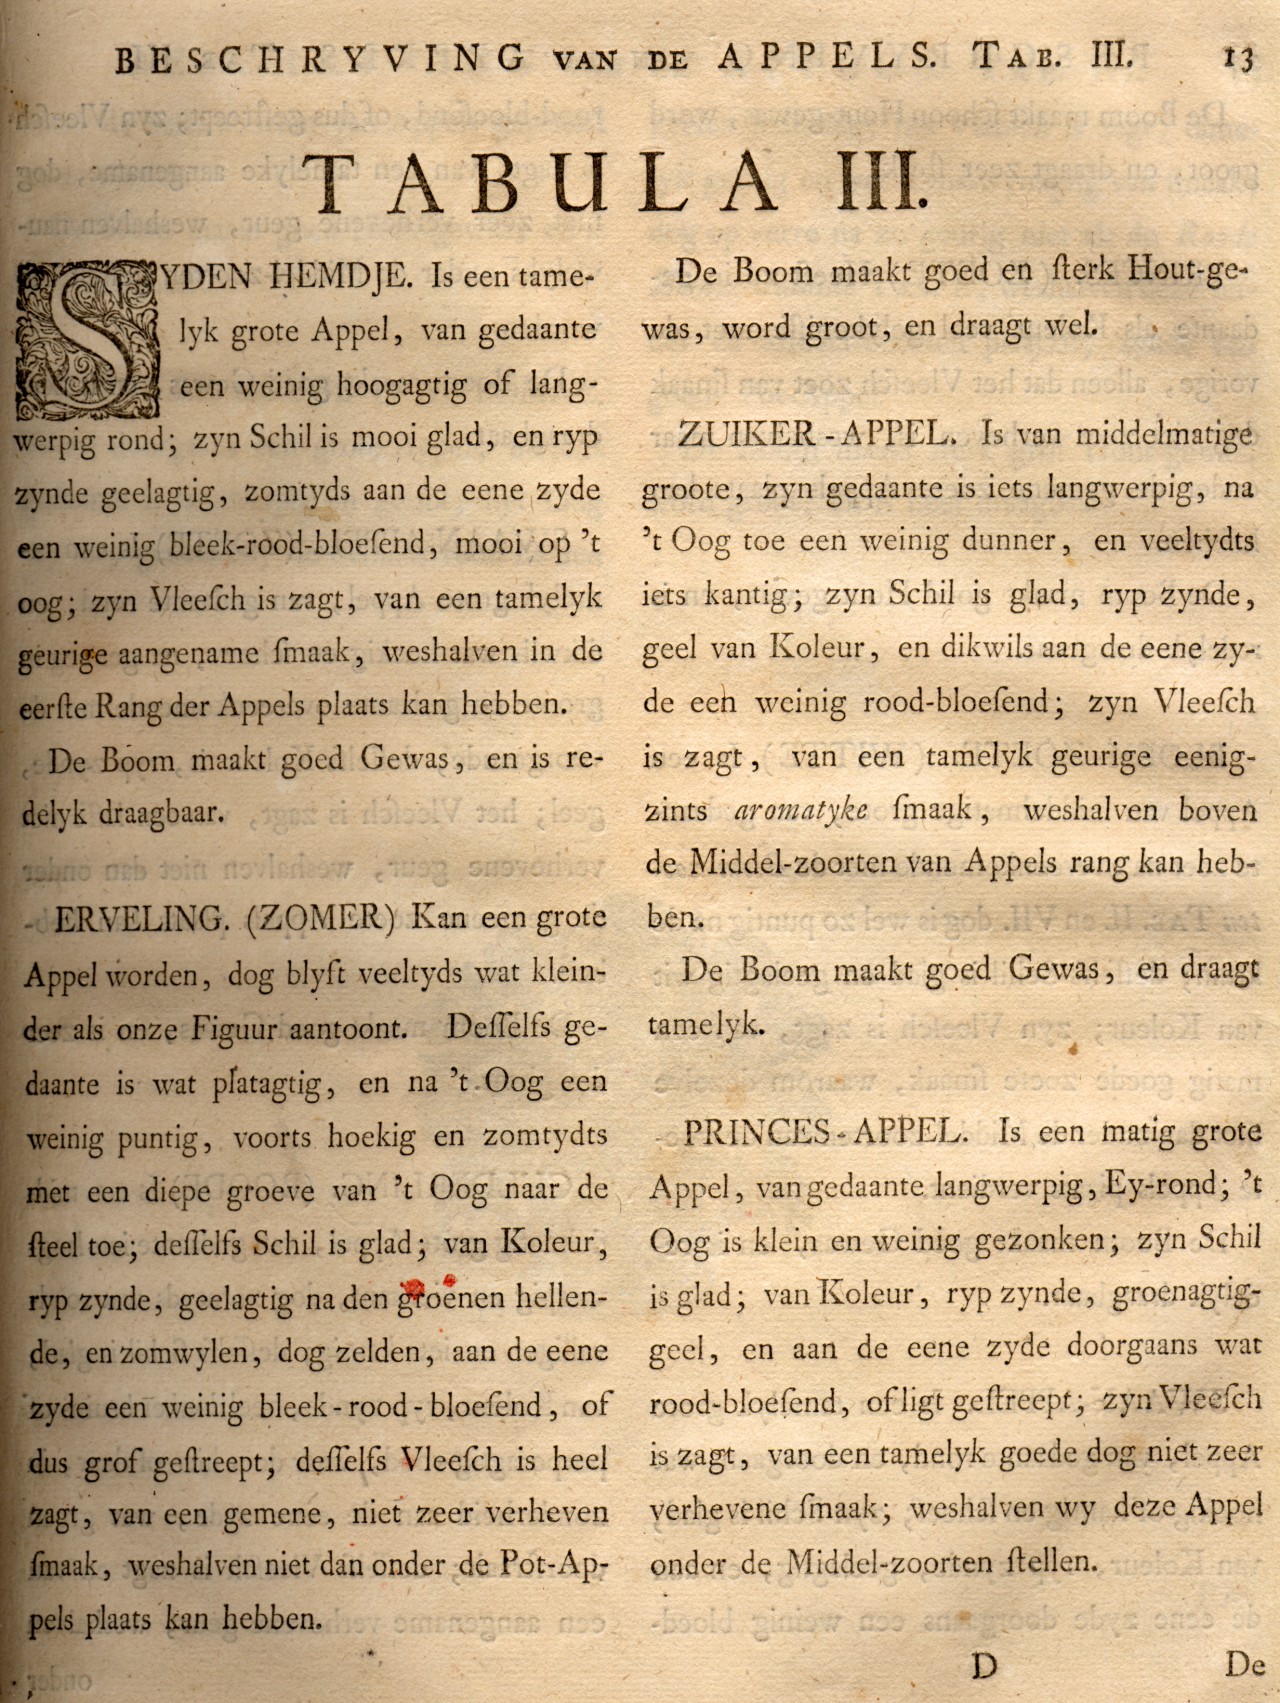 BESCHRYVING VAN DE APPELS. TAB. III. 13
TABULA III.
SYDEN HEMDJE. Is een tame-
lyk grote Appel, van gedaante
een weinig hoogagtig of lang-
werpig rond; zyn Schil is mooi glad, en ryp
zynde geelagtig, zomtyds aan de eene zyde
een weinig bleek-rood-bloeſend, mooi op 't
oog; zyn Vleeſch is zagt, van een tamelyk
geurige aangename ſmaak, weshalven in de
eerſte Rang der Appels plaats kan hebben.
De Boom maakt goed Gewas, en is re-
delyk draagbaar.
ERVELING. (ZOMER) Kan een grote
Appel worden, dog blyft veeltyds wat klein-
der als onze Figuur aantoont. Deſſelfs ge-
daante is wat platagtig, en na 't Oog een
weinig puntig, voorts hoekig en zomtydts
met een diepe groeve van 't Oog naar de
ſteel toe; deſſelfs Schil is glad; van Koleur,
ryp zynde, geelagtig na den groenen hellen-
de, en zomwylen, dog zelden, aan de eene
zyde een weinig bleek-rood-bloeſend, of
dus grof geſtreept; deſſelfs Vleeſch is heel
zagt, van een gemene, niet zeer verheven
ſmaak, weshalven niet dan onder de Pot-Ap-
pels plaats kan hebben.
De Boom maakt goed en ſterk Hout-ge-
was, word groot, en draagt wel.
ZUIKER-APPEL. Is van middelmatige
groote, zyn gedaante is iets langwerpig, na
't Oog toe een weinig dunner, en veeltydts
iets kantig; zyn Schil is glad, ryp zynde,
geel van Koleur, en dikwils aan de eene zy-
de een weinig rood-bloeſend; zyn Vleeſch
is zagt, van een tamelyk geurige eenig-
zints aromatyke ſmaak, weshalven boven
de Middel-zoorten van Appels rang kan heb-
ben.
De Boom maakt goed Gewas, en draagt
tamelyk.
PRINCES-APPEL. Is een matig grote
Appel, van gedaante langwerpig, Ey-rond; 't
Oog is klein en weinig gezonken; zyn Schil
is glad; van Koleur, ryp zynde, groenagtig-
geel, en aan de eene zyde doorgaans wat
rood-bloeſend, of ligt geſtreept; zyn Vleeſch
is zagt, van een tamelyk goede dog niet zeer
verhevene ſmaak; weshalven wy deze Appel
onder de Middel-zoorten ſtellen.
D De